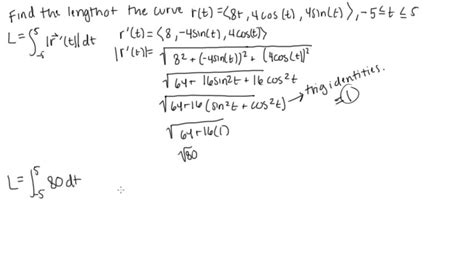 Find the length of the curve r(t) = <8t, 4cos(t), 4sin(t)>, -5 ≤ t ≤ 5
L = ∫₋₅⁵ |r⃗'(t)| dt r'(t) = <8, -4sin(t), 4cos(t)>
|r'(t)| = √(8² + (-4sin(t))² + (4cos(t))²
√(64 + 16sin²t + 16cos²t
√(64+16(sin²t + cos²t) → trig identities.
= 1
√(64+16(1)
√80
L = ∫₋₅⁵ 80 dt